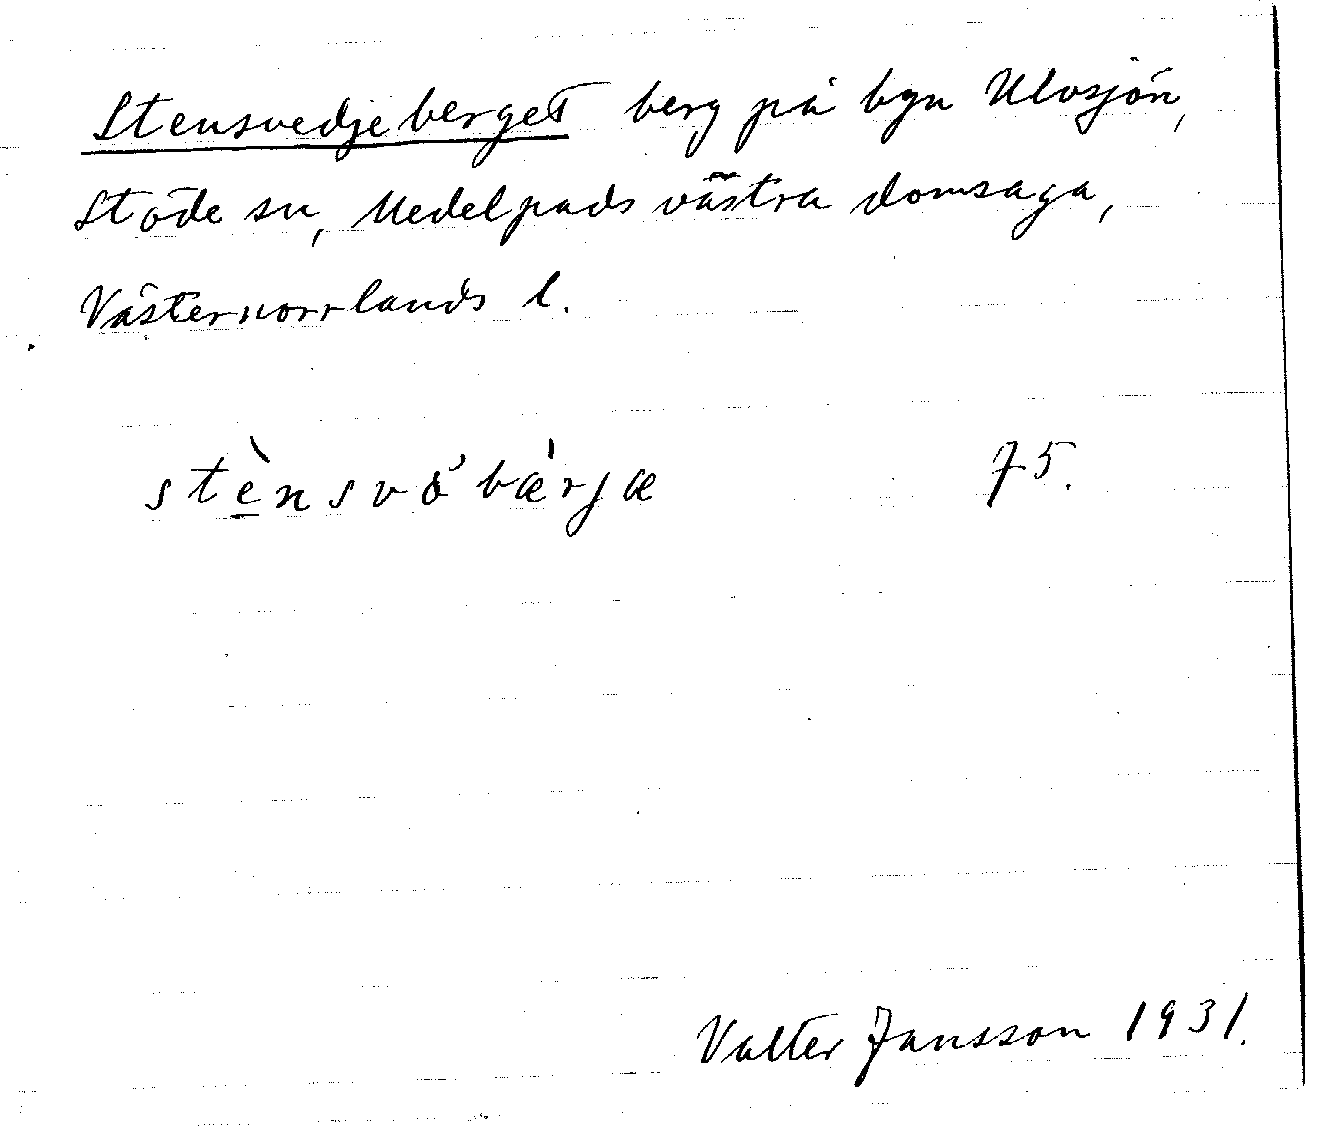 Stensvedjeberget berg på byn Ulvsjön,
Stöde sn, Medelpads västra domsaga,
Västernorrlands l.
stènsvǒbæ̀rjæ 75.
Valter Jansson 1931.